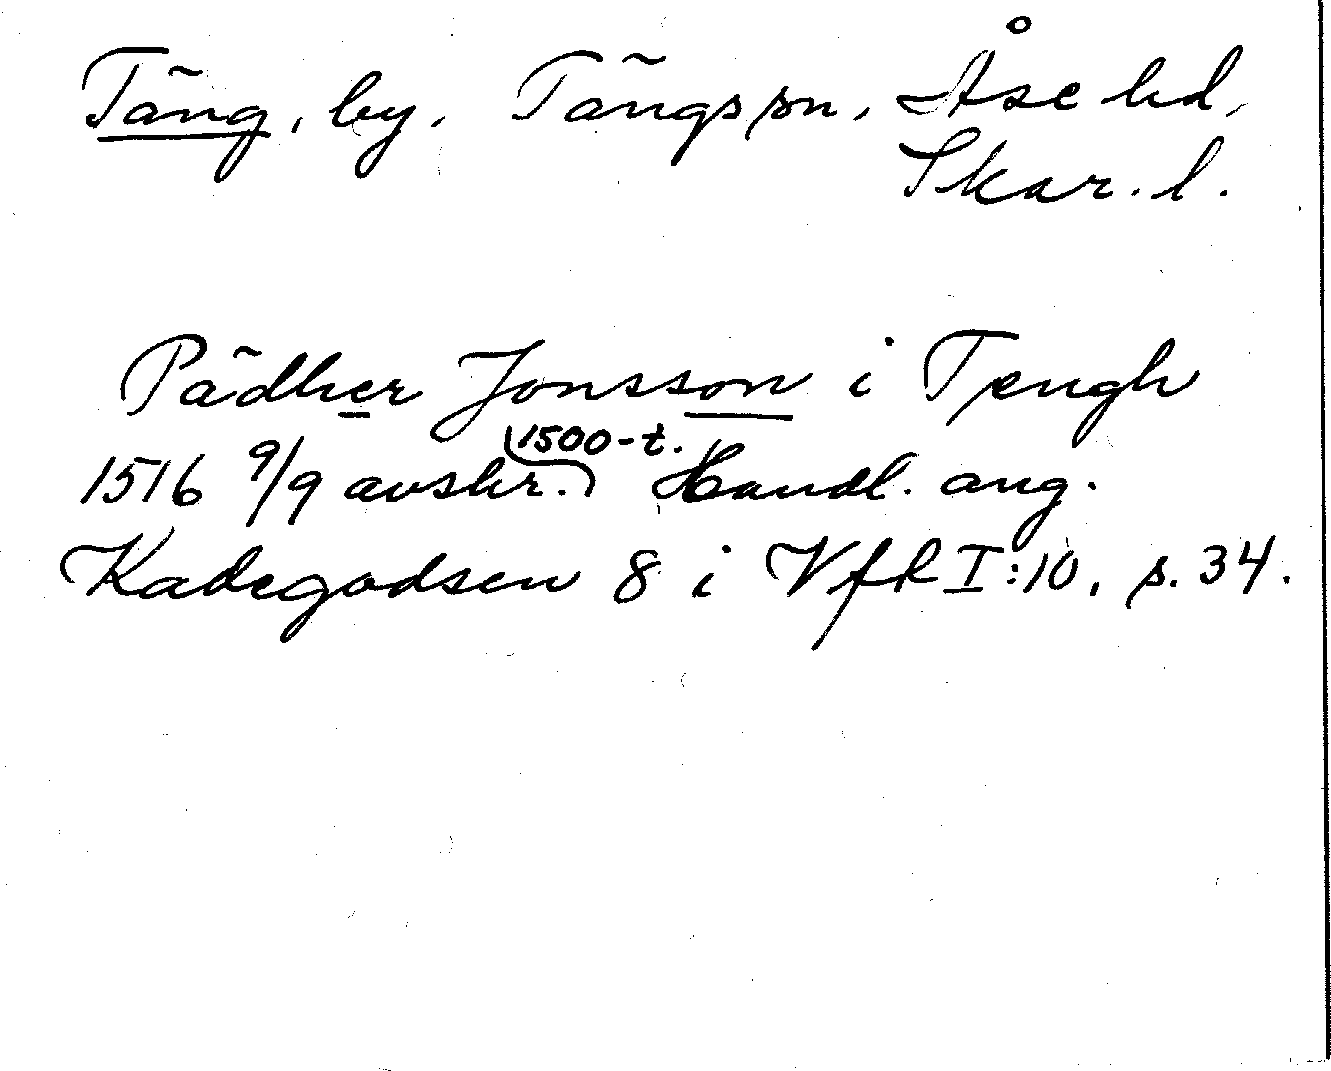 Täng, by. Tängs sn, Åse hd,
Skar. l.
Pädher Jonsson i Tengh
1516 9/9 avskr. 1500-t. Handl. ang.
Kadegodsen 8 i VfR I:10, s. 34.